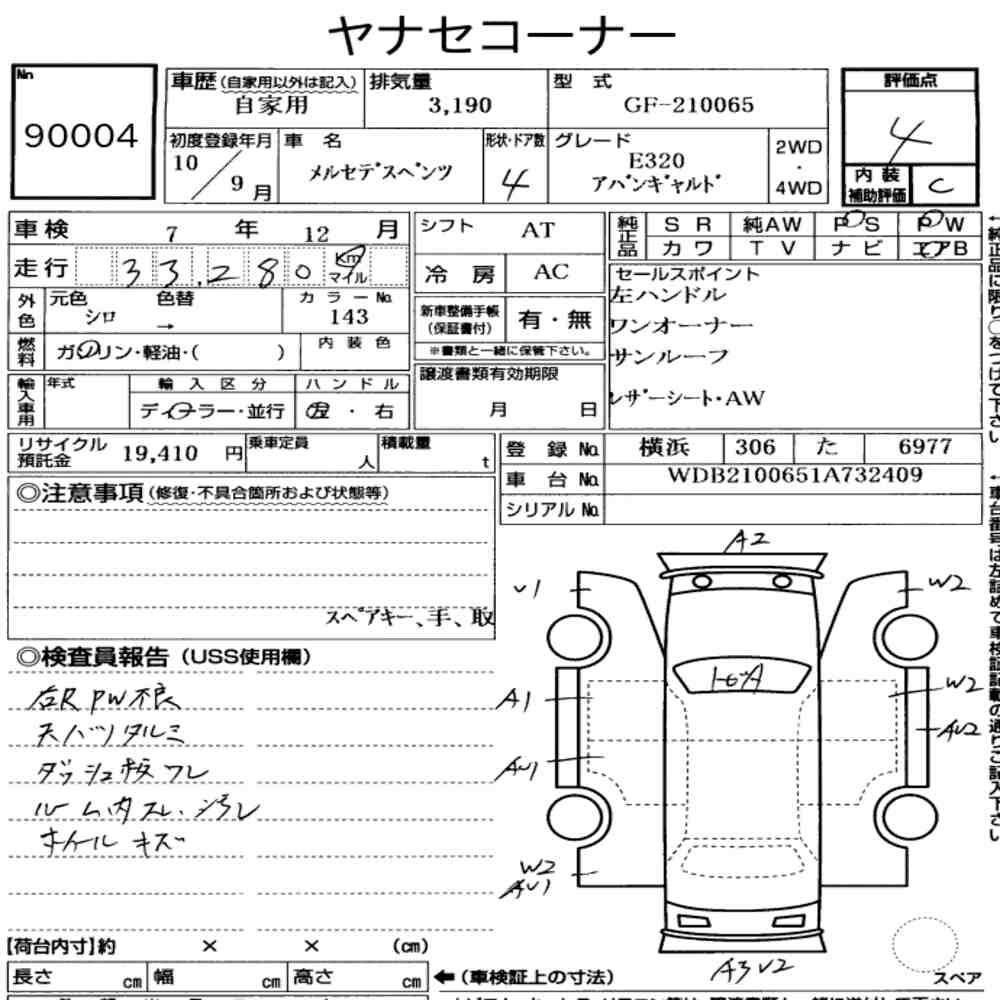 ヤナセコーナー
No
90004
車歴(自家用以外は記入)
自家用
排気量
3,190
型 式
GF-210065
評価点
4
内 装
補助評価
C
初度登録年月
10/9月
車 名
メルセデスベンツ
形状・ドア数
4
グレード
E320
アバンギャルド
2WD
・
4WD
車検 7 年 12 月
走行 33,280 Km
マイル
シフト AT
冷 房 AC
純正品
S R 純AW P S P W
カ ワ T V ナ ビ エアB
外色
元色 シロ
色替 →
カ ラ ー No.
143
燃料
ガソリン・軽油・( )
内 装 色
新車整備手帳
(保証書付)
有・無
※書類と一緒に保管下さい。
セールスポイント
左ハンドル
ワンオーナー
サンルーフ
レザーシート・AW
輸入車用
年式
輸 入 区 分
ディーラー・並行
ハ ン ド ル
左 ・ 右
譲渡書類有効期限
月 日
リサイクル
預託金
19,410 円
乗車定員
人
積載量
t
登 録 No. 横浜 306 た 6977
車 台 No. WDB2100651A732409
シリアル No.
◎注意事項(修復・不具合箇所および状態等)
スペアキー、手、取
◎検査員報告(USS使用欄)
右R PW不良
天バリタルミ
ダッシュ板ワレ
ルーム内スレ・汚レ
ホイールキズ
A2
U1
W2
A1
W2
AU2
AU1
W2
AU1
A3 U2
スペア
【荷台内寸】約 × × (cm)
長さ cm 幅 cm 高さ cm
←(車検証上の寸法)
←純正品に限り○をつけて下さい
←車台番号は左詰めで車検証記載の通りご記入下さい